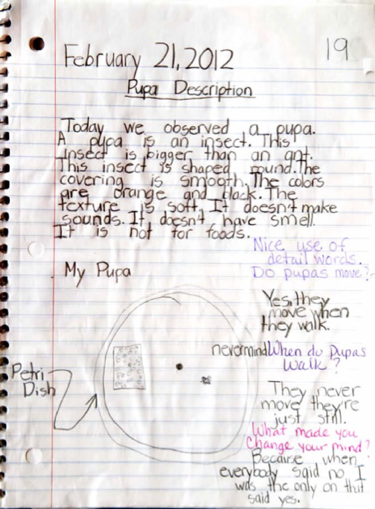 19
February 21, 2012
Pupa Description
Today we observed a pupa.
A pupa is an insect. This
insect is bigger than an ant.
This insect is shaped round. The
covering is smooth. The colors
are orange and black. The
texture is soft. It doesn't make
sounds. It doesn't have smell.
It is not for foods.
Nice use of
detail words.
Do pupas move?
My Pupa
Yes, they
move when
they walk.
nevermind When do Pupas
Walk?
Petri
Dish
They never
move they're
just still.
What made you
change your mind?
Because when
everybody said no I
was the only on that
said yes.